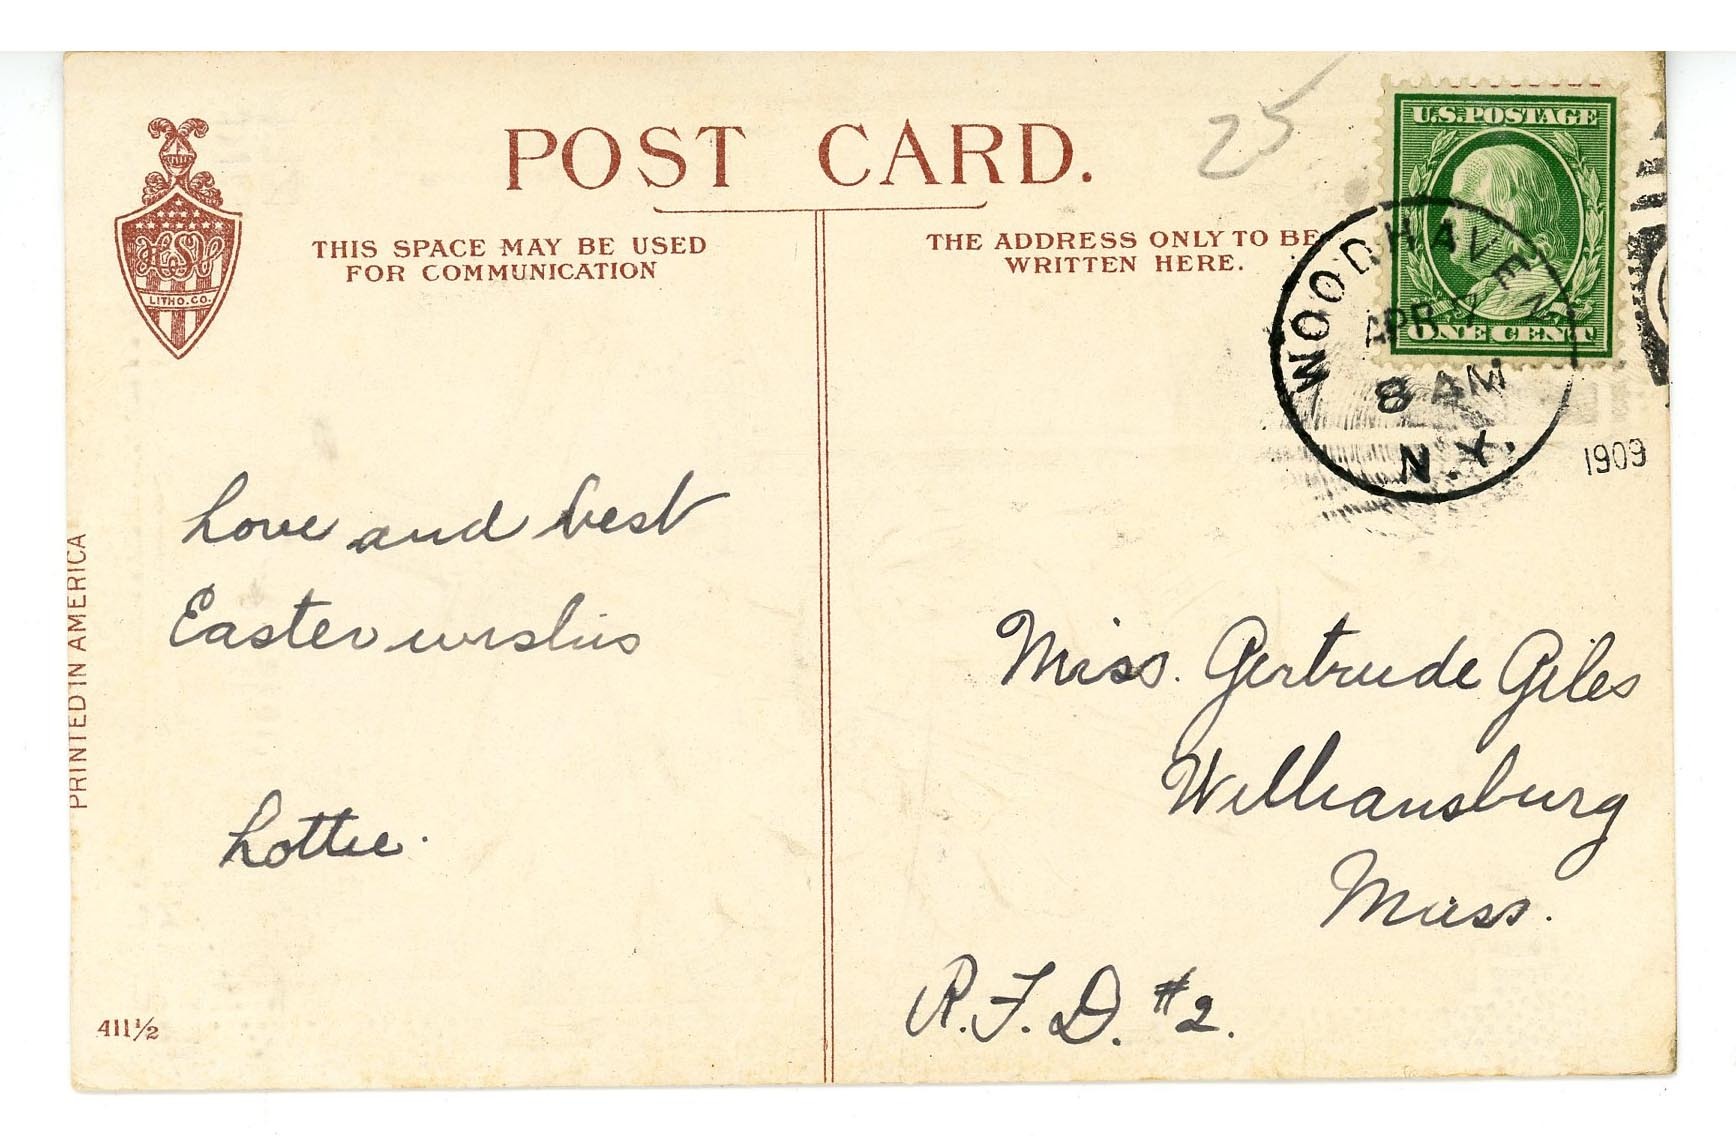 POST CARD.
THIS SPACE MAY BE USED
FOR COMMUNICATION
THE ADDRESS ONLY TO BE
WRITTEN HERE.
25
U.S. POSTAGE
ONE CENT
WOODHAVEN
APR 7
8 AM
N.Y.
1909
LITHO. CO.
PRINTED IN AMERICA
Love and best
Easter wishes
Lottie.
Miss. Gertrude Giles
Williansburg
Mass.
R.F.D. #2.
411½